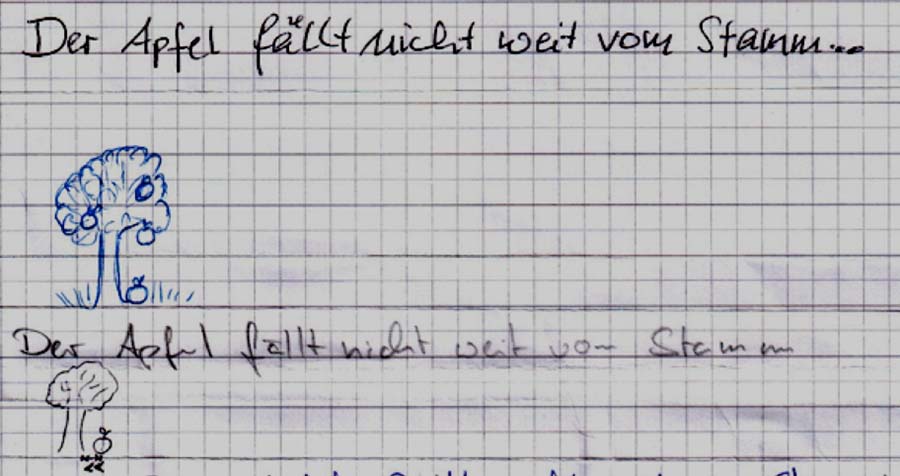 Der Apfel fällt nicht weit vom Stamm...
Der Apfel fällt nicht weit vom Stamm